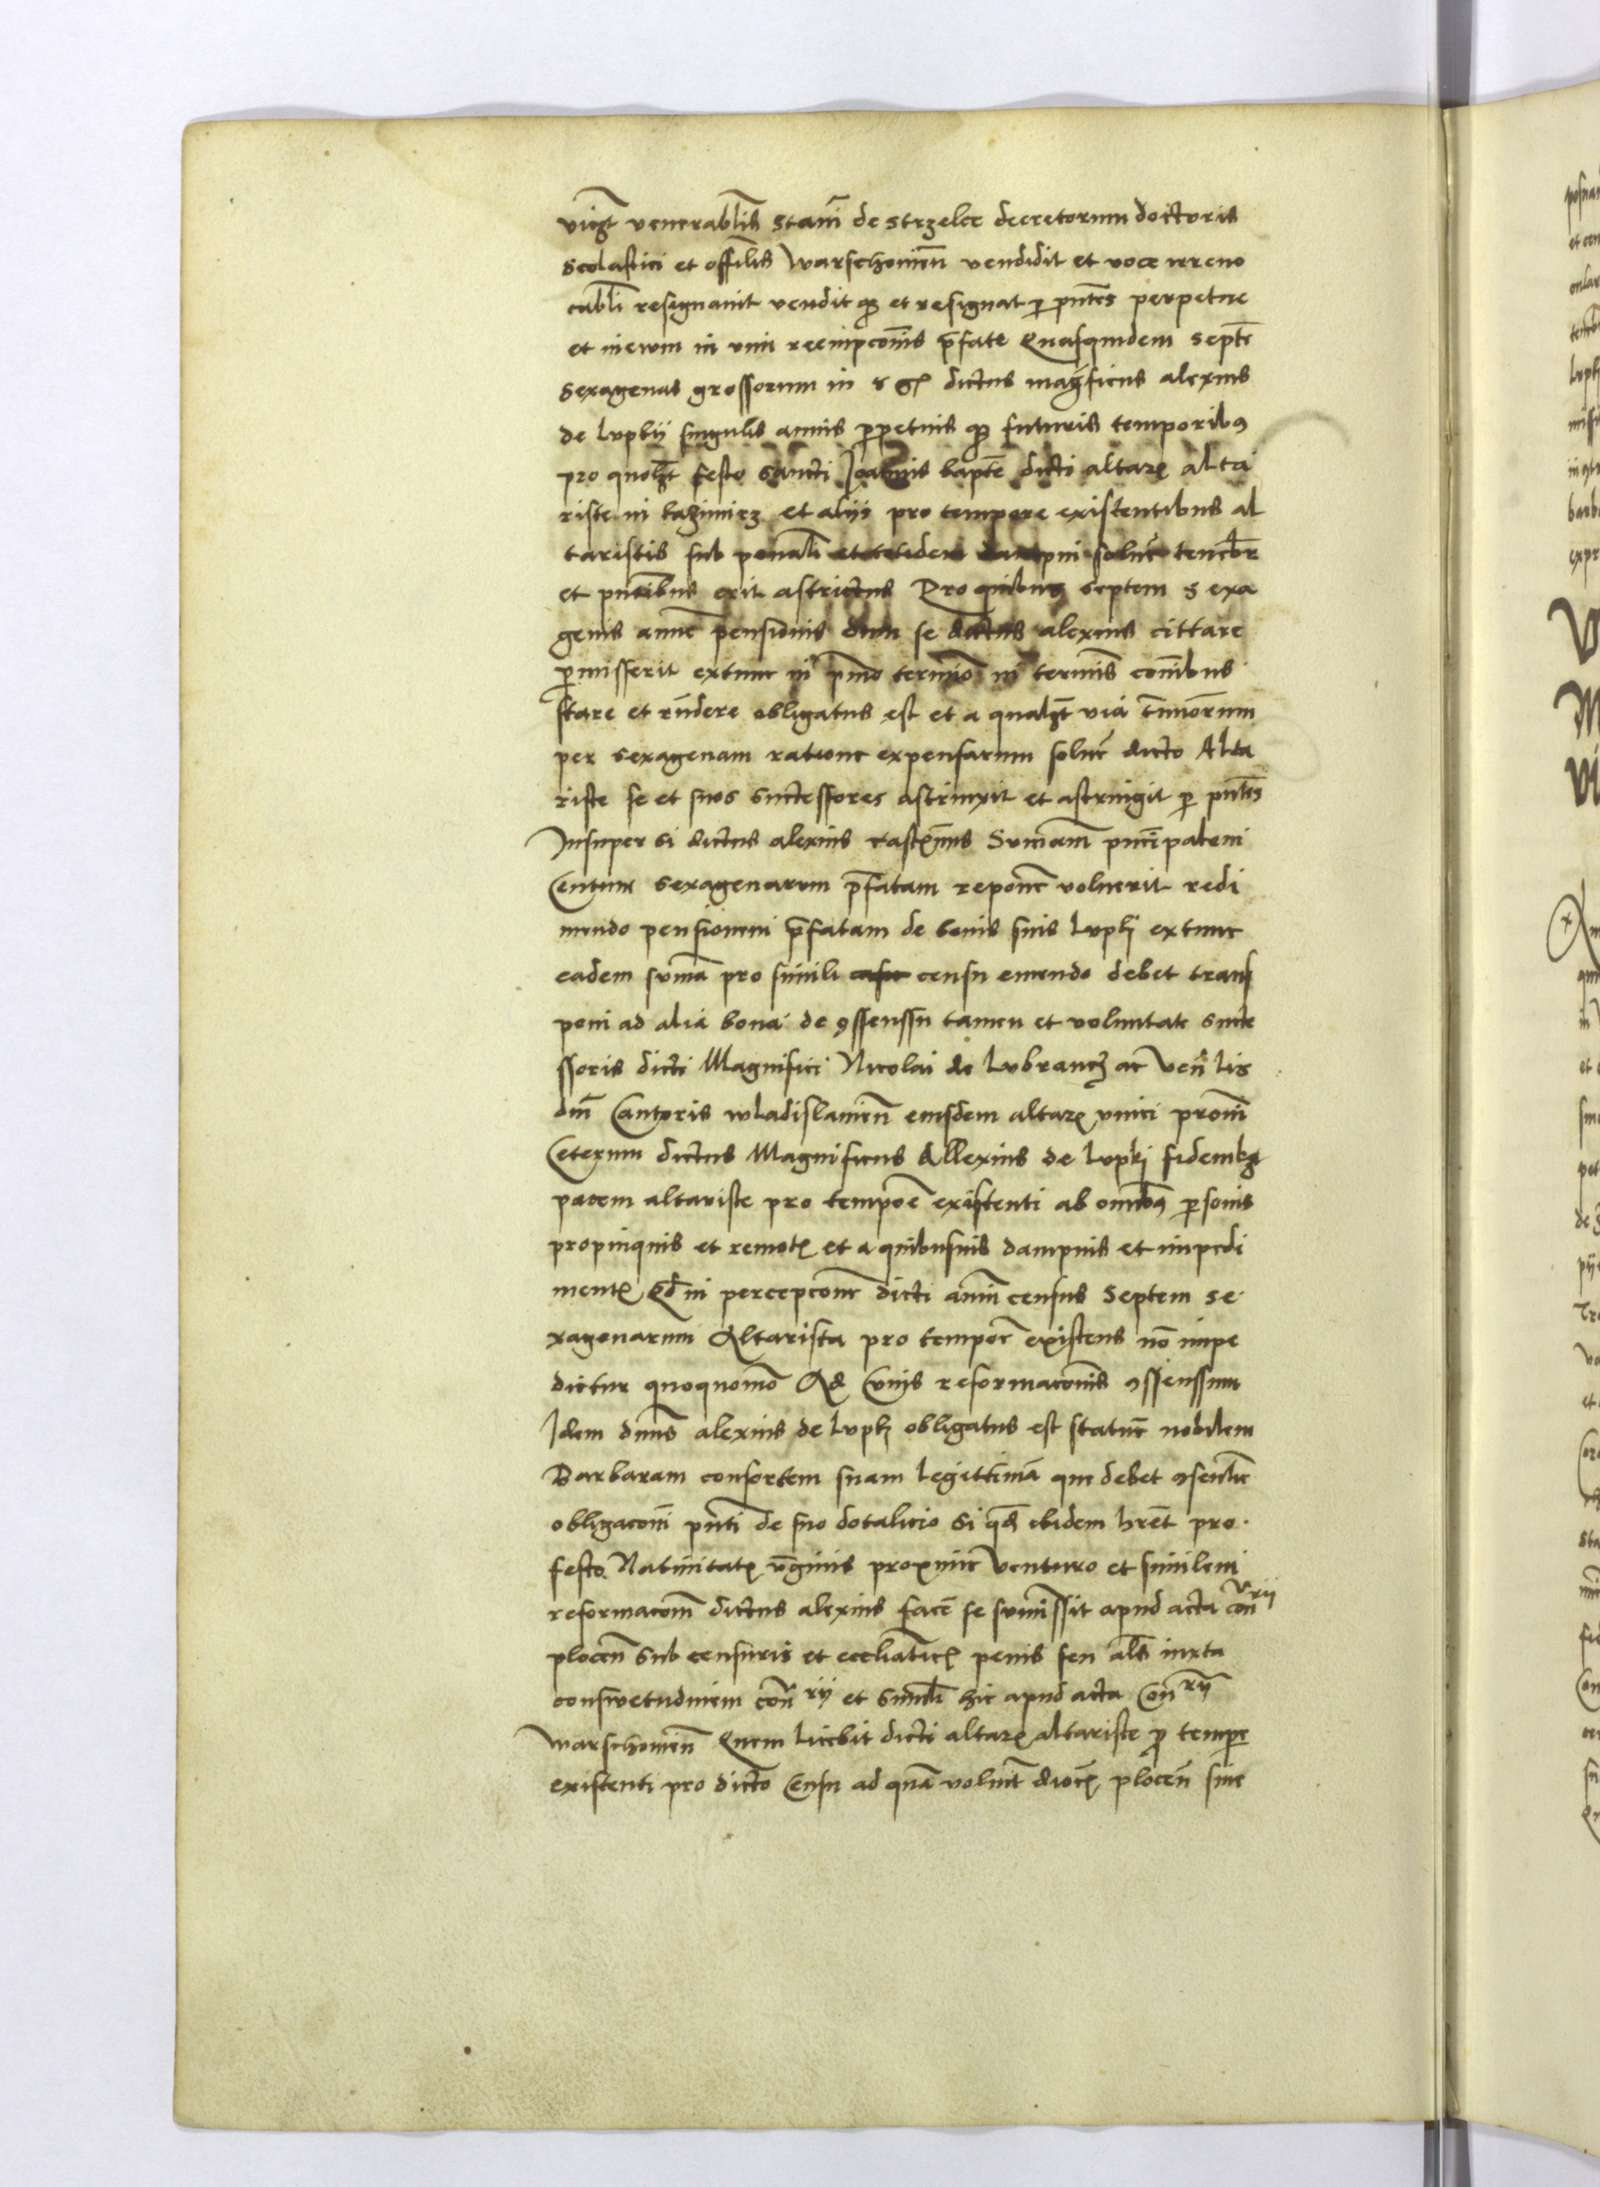 vicgt venerablis Stani de Strzelce decretorum doctoris
Scolastici et offilis Warschouien vendidit et voce irreuo
cabli resignauit vendit q et resignat p pntes perpetue
et in ewm in vim reempconis pfate Quasquidem Septe
Sexagenas grossorum in dictus magficus alexius
de lupky singulis annis ppetuis q futuris temporibus
pro quolzt festo Sancti Joannis bapte dicti altar altа
riste in kazimirz et aliis pro tempore existentibus al
taristis sub penali pni solue tenebr
et pntibus erit astrictus Pro quibus septem sexa
genis annue pensionis dum se dictus alexius cittare
pmisserit extunc in pmo termio in termis conibus
stare et rndere obligatus est et a qualzt via tminorum
per sexagenam ratione expensarum solue dicto Alta
riste se et suos successores astrinxit et astringit p pntes
Insuper si dictus alexius Summam pncipalem
Centum sexagenarum pfatam repone voluerit redi
mendo pensionem pfatam de bonis suis lupki extunc
eadem suma pro simili censu emendo debet trans
poni ad alia bona de 9ssenssu tamen et voluntate succe
ssoris dicti Magnifici Nicolai de lubrancz ac Ven lis
dni Cantoris wladislauien eiusdem altar vnici
Ceterum dictus Magnificus Allexius de lupki fidem
pacem altariste pro tempoe existenti ab omibus psonis
propinquis et remot et a quibusuis dampnis et impedi
ment in percepcone dicti anni census Septem se
xagenarum Altarista pro tempore existens no impe
dietur quoquomo Ad cuius reformaconis 9ssenssum
Idem dnus alexius de lupki obligatus est statue nobilem
Barbaram consortem suam legittima que debet 9sentire
obligaconi pnti de suo dotalicio si qd ibidem hret pro
festo Natiuitat vginis proxime Venturo et similem
reformacom dictus alexius face se sumissit apud acta con rii
plocen sub censuris et eccliatic penis seu als iuxta
conswetudinem con rij et Simili hic apud acta Con rij
warschouien Quem licebit dicti altar altariste p tempe
existenti pro dicto Censu ad qua voluit dioc plocen siue